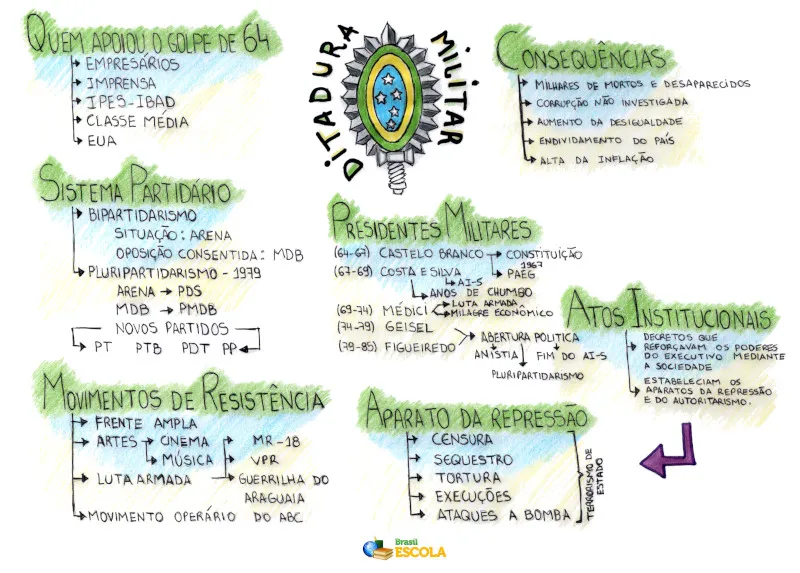 DITADURA MILITAR
QUEM APOIOU O GOLPE DE 64
EMPRESÁRIOS
IMPRENSA
IPES-IBAD
CLASSE MÉDIA
EUA
CONSEQUÊNCIAS
MILHARES DE MORTOS E DESAPARECIDOS
CORRUPÇÃO NÃO INVESTIGADA
AUMENTO DA DESIGUALDADE
ENDIVIDAMENTO DO PAÍS
ALTA DA INFLAÇÃO
SISTEMA PARTIDÁRIO
BIPARTIDARISMO
SITUAÇÃO: ARENA
OPOSIÇÃO CONSENTIDA: MDB
PLURIPARTIDARISMO - 1979
ARENA → PDS
MDB → PMDB
NOVOS PARTIDOS
PT PTB PDT PP
PRESIDENTES MILITARES
(64-67) CASTELO BRANCO → CONSTITUIÇÃO
1967
(67-69) COSTA E SILVA PAEG
AI-5
ANOS DE CHUMBO
(69-74) MÉDICI LUTA ARMADA
MILAGRE ECONÔMICO
(74-79) GEISEL
ABERTURA POLÍTICA
(79-85) FIGUEIREDO
ANISTIA FIM DO AI-5
PLURIPARTIDARISMO
ATOS INSTITUCIONAIS
DECRETOS QUE
REFORÇAVAM OS PODERES
DO EXECUTIVO MEDIANTE
A SOCIEDADE
ESTABELECIAM OS
APARATOS DA REPRESSÃO
E DO AUTORITARISMO.
MOVIMENTOS DE RESISTÊNCIA
FRENTE AMPLA
ARTES → CINEMA
MÚSICA
LUTA ARMADA
MR-18
VPR
GUERRILHA DO
ARAGUAIA
MOVIMENTO OPERÁRIO DO ABC
APARATO DA REPRESSÃO
CENSURA
SEQUESTRO
TORTURA
EXECUÇÕES
ATAQUES A BOMBA
TERRORISMO DE
ESTADO
Brasil
ESCOLA